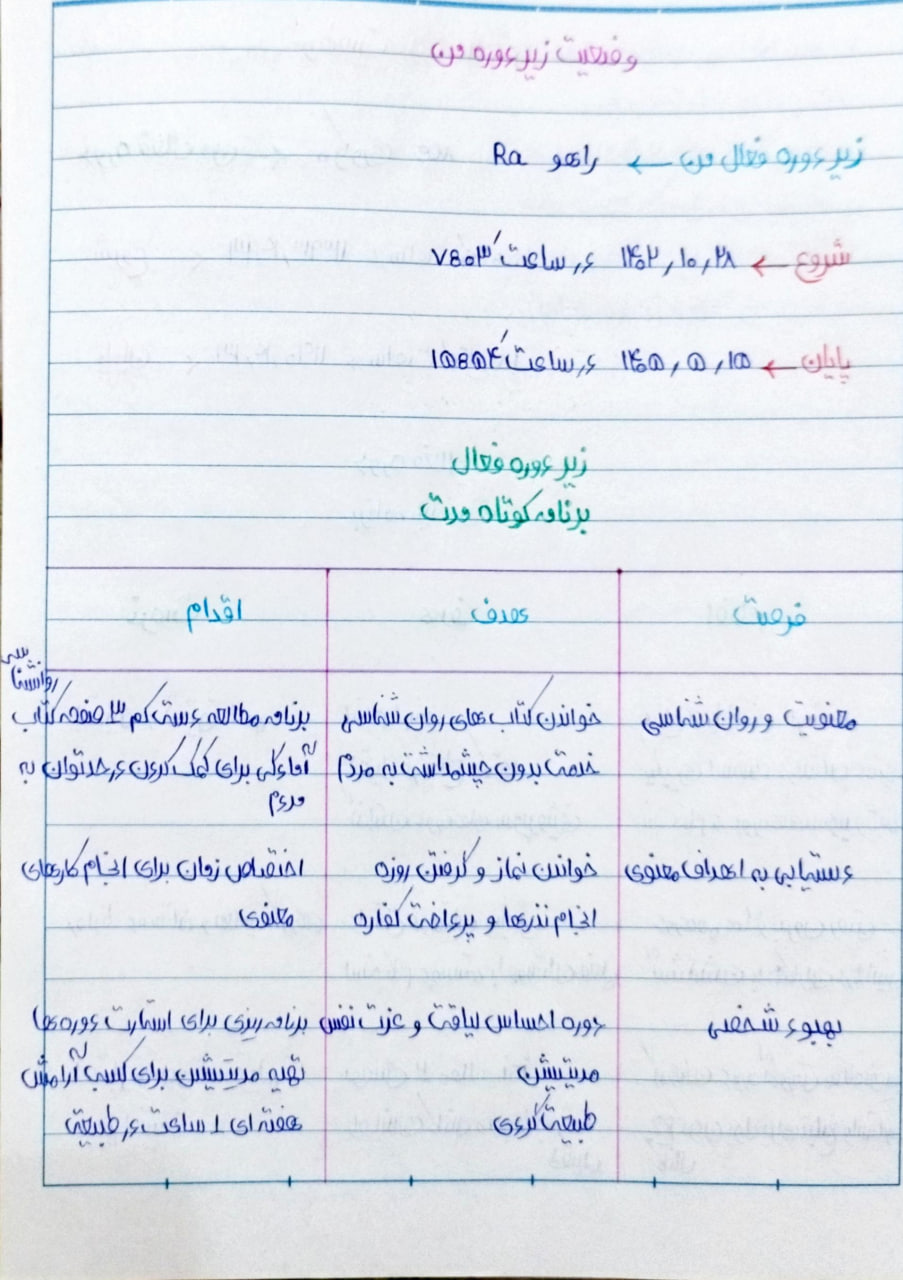 وضعیت زیر دوره من
زیر دوره فعال من ← راهو Ra
شروع ← ۱۴۰۲٫۱۰٫۲۸ در ساعت ۷:۰۳
پایان ← ۱۴۰۵٫۵٫۱۵ در ساعت ۱۵:۵۴
زیر دوره فعال
برنامه کوتاه مدت
فرصت هدف اقدام
معنویت و روان شناسی
خواندن کتاب های روان شناسی
خدمت بدون چشمداشت به مردم
برنامه مطالعه دست کم ۳ صفحه کتاب روانشناسی
آمادگی برای کمک کردن در حد توان به
مردم
دستیابی به اهداف معنوی
خواندن نماز و گرفتن روزه
انجام نذرها و پرداخت کفاره
اختصاص زمان برای انجام کارهای
معنوی
بهبود شخصی
دوره احساس لیاقت و عزت نفس
مدیتیشن
طبیعت گردی
برنامه ریزی برای استارت دوره ها
تهیه مدیتیشن برای کسب آرامش
هفته ای ۱ ساعت در طبیعت